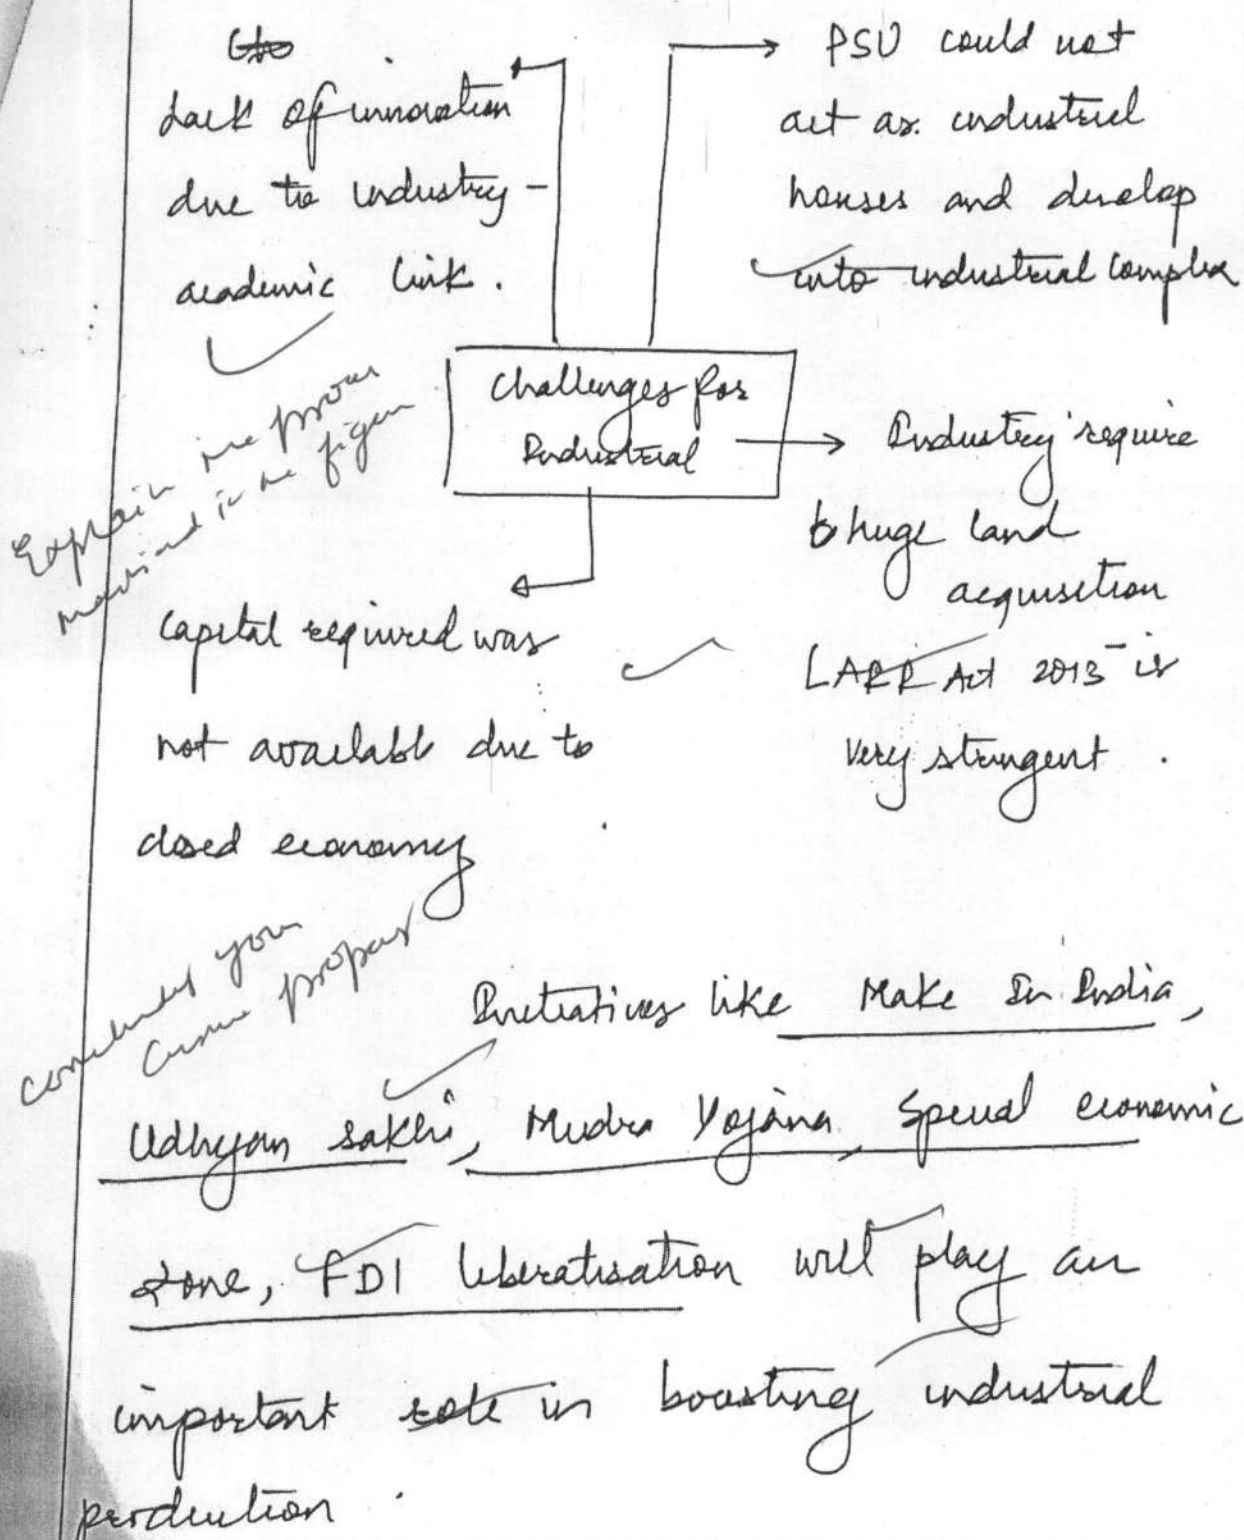 Lack of innovation
due to industry -
academic link.
PSU could not
act as industrial
houses and develop
into industrial complex
Challenges for
Industrial
Industry require
huge land
acquisetion
LARR Act 2013 is
very stringent.
Capital required was
not available due to
closed economy
Explain the
in the figure
your
Initiatives like Make In India,
Udhyam Sakhi, Mudra Yojana, Special economic
zone, FDI liberatisation will play an
important role in boosting industrial
production.